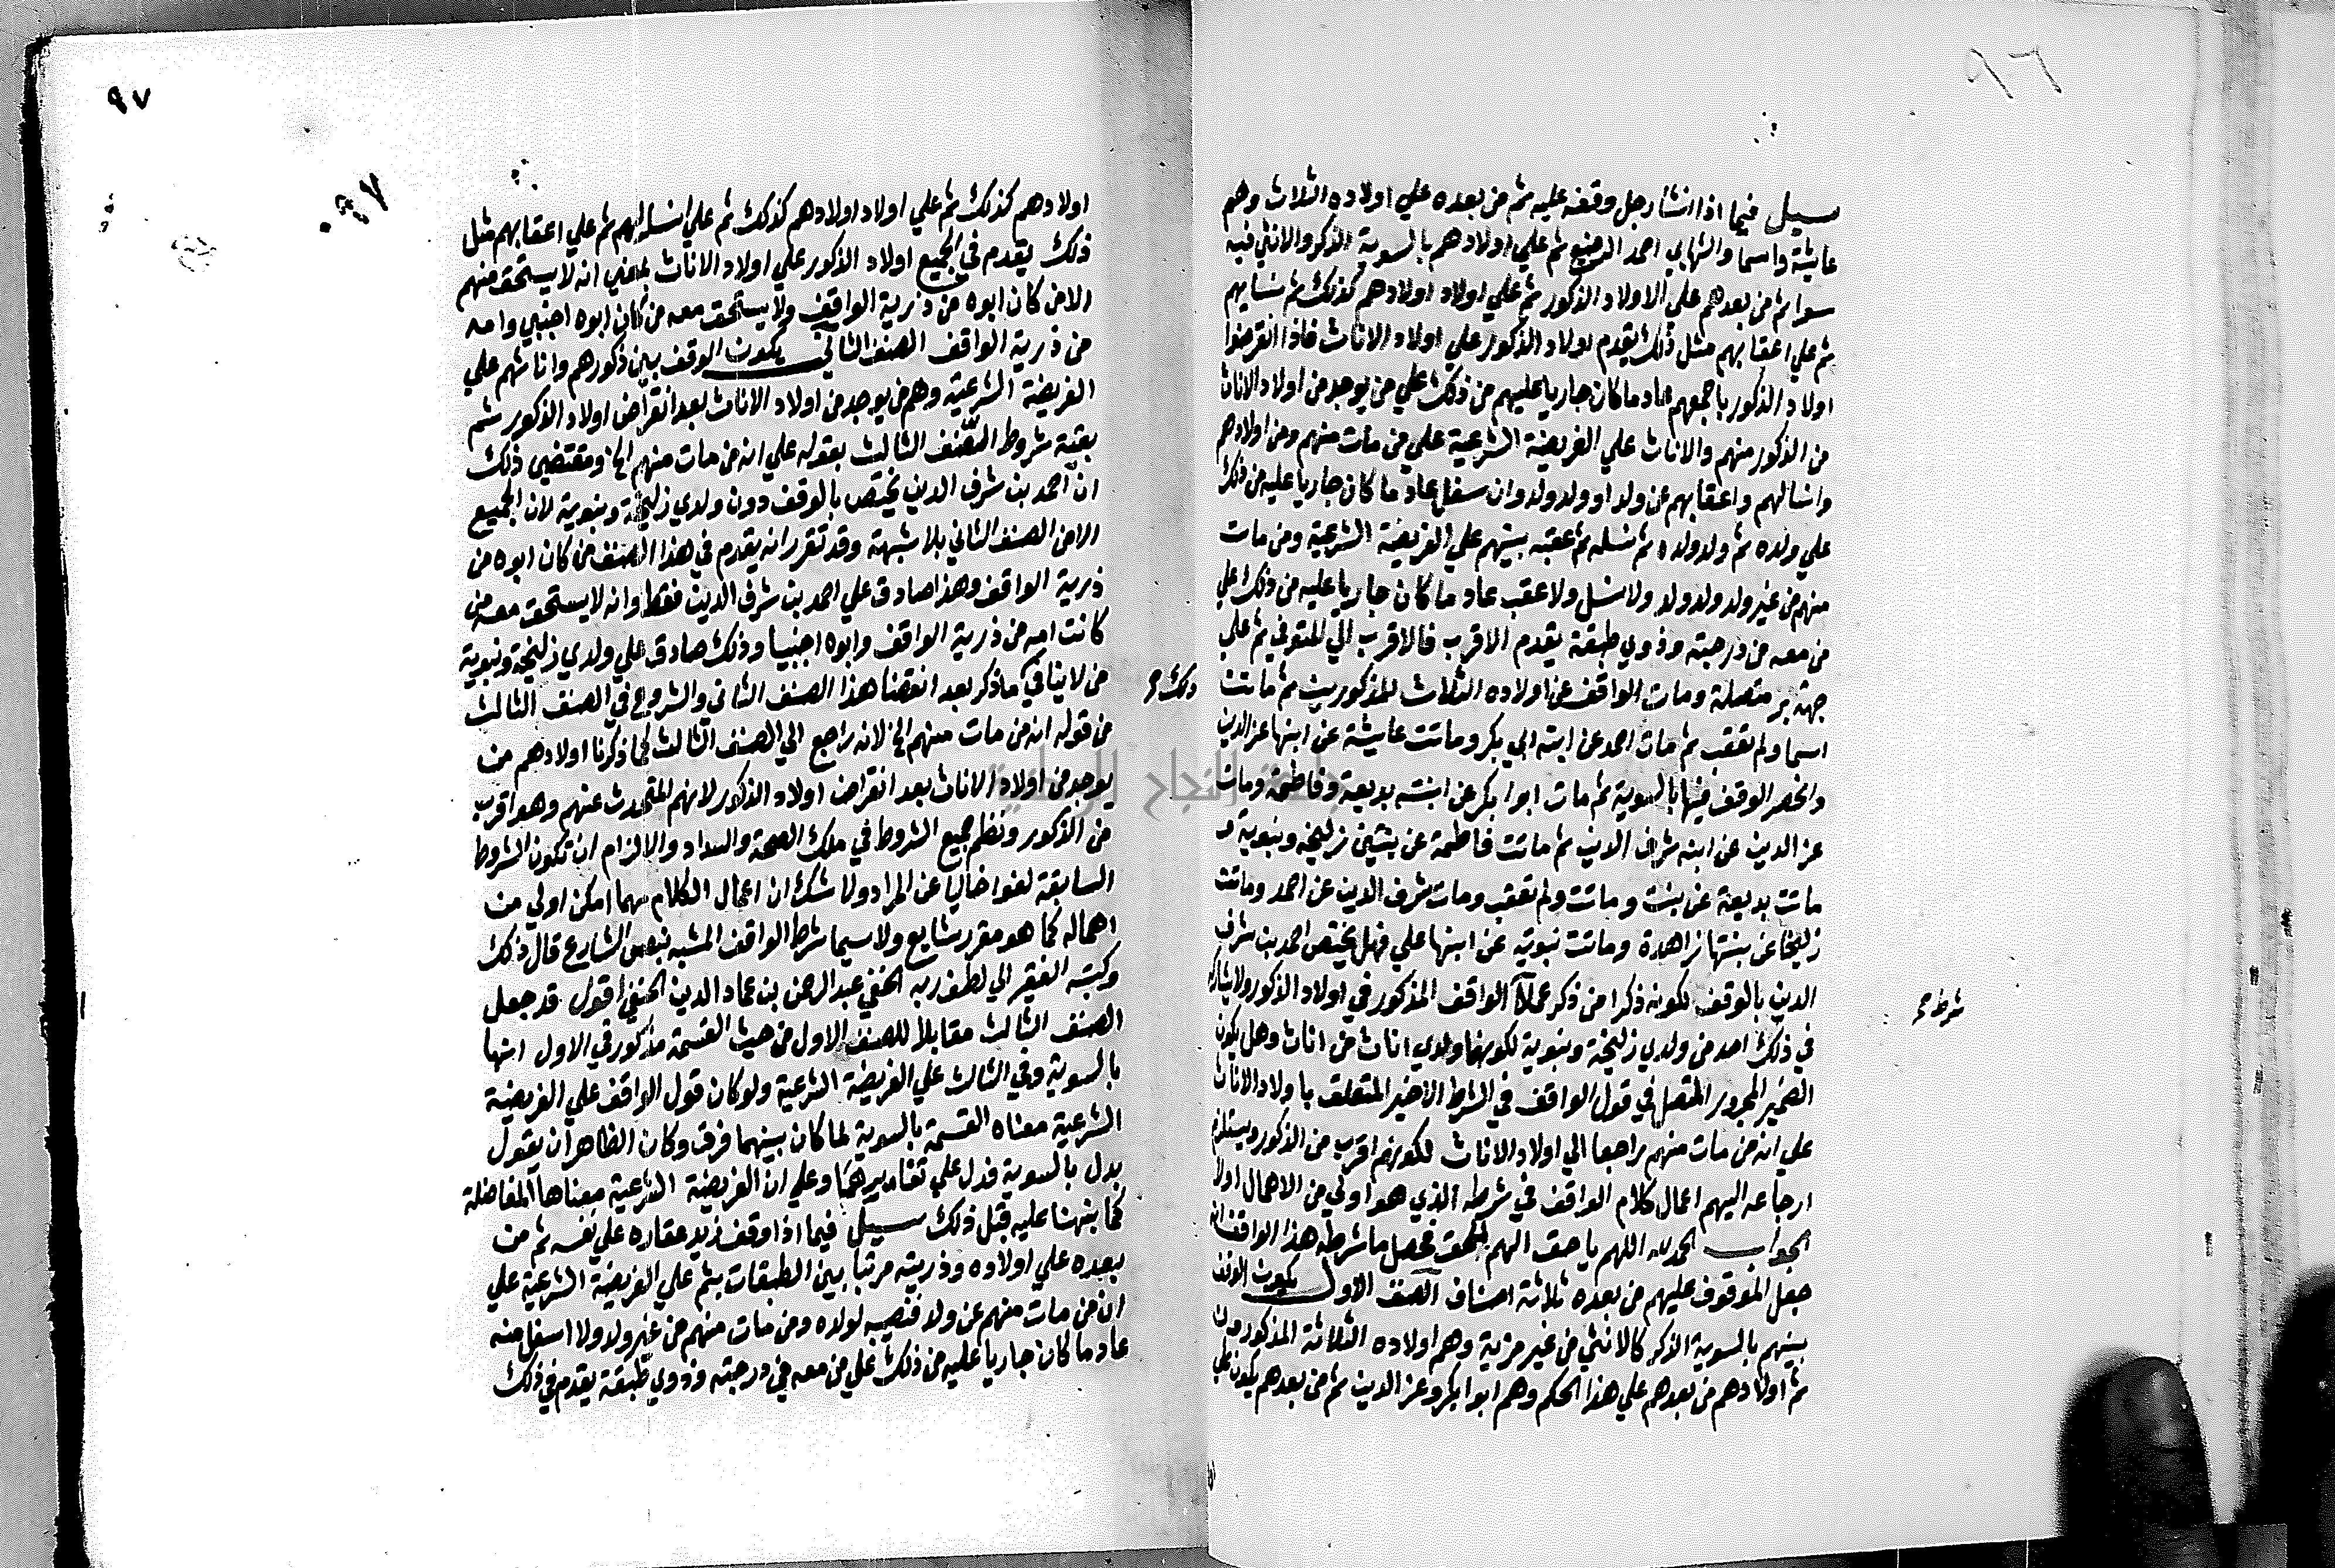 ٩٦
سيل فيما اذا انشا رجل وقفه عليه ثم من بعده علي اولاده الثلاث وهم
عايشة واسما والشهابي احمد الرضيع ثم علي اولادهم بالسوية الذكر والانثي فيه
سوا ثم من بعدهم علي الاولاد الذكور ثم علي اولاد اولادهم كذلك ثم انسابهم
ثم علي اعقابهم مثل ذلك يقدم اولاد الذكور علي اولاد الاناث فاذا انقرضوا
اولاد الذكور باجمعهم عاد ما كان جاريا عليهم من ذلك علي من يوجد من اولاد الاناث
من الذكور منهم والاناث علي الفريضة الشرعية علي من مات منهم ومن اولادهم
وانسالهم واعقابهم عن ولد او ولد ولد وان سفل عاد ما كان جاريا عليه من ذلك
علي ولده ثم ولد ولده ثم نسله ثم عقبه بينهم علي الفريضة الشرعية ومن مات
منهم من غير ولد ولد ولد ولا نسل ولا عقب عاد ما كان جاريا عليه من ذلك علي
من معه من درجته وذوي طبقة يقدم الاقرب فالاقرب الي المتوفي ثم علي
جهة بر متصلة ومات الواقف عن اولاده الثلاث المذكورين ثم ماتت
اسما ولم تعقب ثم مات احمد عن ابنه ابي بكر وماتت عايشة عن ابنها عز الدين
وانحصر الوقف فيها بالسوية ثم مات ابوا بكر عن ابنته بديعة وفاطمة ومات
عز الدين عن ابنه شرف الدين ثم ماتت فاطمة عن بنتين زليخة ونبوية و
ماتت بديعة عن بنت وماتت ولم تعقب ومات شرف الدين عن احمد وماتت
زليخا عن بنتها زاهدة وماتت نبوية عن ابنها علي فهل يختص احمد بن شرف
الدين بالوقف لكونه ذكرا من ذكر عملا الواقف المذكور في اولاد الذكور ولا يشاركه
شرط صح
في ذلك احد من ولدي زليخة ونبوية لكونهما ولدي اناث من اناث وهل يكون
الضمير المجرور المتصل في قول الواقف في الشرط الاخير المتعلق باولاد الاناث
علي انه من مات منهم راجعا الي اولاد الاناث لكونهم اقرب من الذكور ويستلزم
ارجاعه اليهم اعمال كلام الواقف في شرطه الذي هو اولي من الاهمال اولا
الجواب الحمد لله اللهم يا حق الهم للحق محصل ما شرطه هذا الواقف انه
جعل الموقوف عليهم من بعده ثلاثة اصناف الصنف الاول يكون الوقف
بينهم بالسوية الذكر كالانثي من غير مزية وهم اولاده الثلاثة المذكورون
ثم اولادهم من بعدهم علي هذا الحكم وهم ابوا بكر وعز الدين ثم من بعدهم يكون علي
٩٧
٩٧
اولادهم كذلك ثم علي اولاد اولادهم كذلك ثم علي انسالهم ثم علي اعقابهم مثل
ذلك يقدم في الجميع اولاد الذكور علي اولاد الاناث بمعني انه لا يستحق منهم
الا من كان ابوه من ذرية الواقف ولا يستحق معه من كان ابوه اجنبي وامه
من ذرية الواقف الصنف الثاني يكون الوقف بين ذكورهم واناثهم علي
الفريضة الشرعية وهم من يوجد من اولاد الاناث بعد انقراض اولاد الذكور ثم
بقية شروط الصنف الثالث بقوله علي انه من مات منهم الخ ومقتضي ذلك
ان احمد بن شرف الدين يختص بالوقف دون ولدي زليخة ونبوية لان الجميع
الا من الصنف الثاني بلا شبهة وقد تقرر انه يقدم في هذا الصنف من كان ابوه من
ذرية الواقف وهذا صادق علي احمد بن شرف الدين فقط وانه لا يستحق معه من
كانت امه من ذرية الواقف وابوه اجنبيا وذلك صادق علي ولدي زليخة ونبوية
من لا ينافي ما ذكر بعد انقضا هذا الصنف الثاني والشروع في الصنف الثالث
ذلك صح
من قوله انه من مات منهم الخ لانه راجع الي الصنف الثالث كما ذكرنا اولادهم من
يوجد من اولاد الاناث بعد انقراض اولاد الذكور لانهم المتحدث عنهم وهو اقرب
من الذكور ونظم جميع الشروط في ملك الصحة والسداد والالزام ان تكون الشروط
السابقة لغوا خاليا عن المراد ولا شك ان اعمال الكلام مهما امكن اولي من
اهماله كما هو مقرر شايع ولا سيما شرط الواقف المشبه بنص الشارع قال ذلك
وكتبه الفقير الي لطف ربه الخفي عبد الرحمن بن عماد الدين الحنفي اقول قد جعل
الصنف الثالث مقابلا للصنف الاول من حيث القسمة مذكور في الاول انها
بالسوية وفي الثالث علي الفريضة الشرعية ولو كان قول الواقف علي الفريضة
الشرعية معناه القسمة بالسوية لما كان بينهما فرق وكان الظاهر ان يقول
بدل بالسوية فدل علي تغايرهما وعلي ان الفريضة الشرعية معناها المفاضلة
كما نبهنا عليه قبل ذلك سيل فيما اذا وقف زيد عقاره علي نفسه ثم من
بعده علي اولاده وذريته مرتبا بين الطبقات بثم علي الفريضة الشرعية علي
ان من مات منهم عن ولد فنصيبه لولده ومن مات منهم من غير ولد ولا اسفل منه
عاد ما كان جاريا عليه من ذلك علي من معه في درجته وذوي طبقة يقدم في ذلك
جامعة النجاح الوطنية